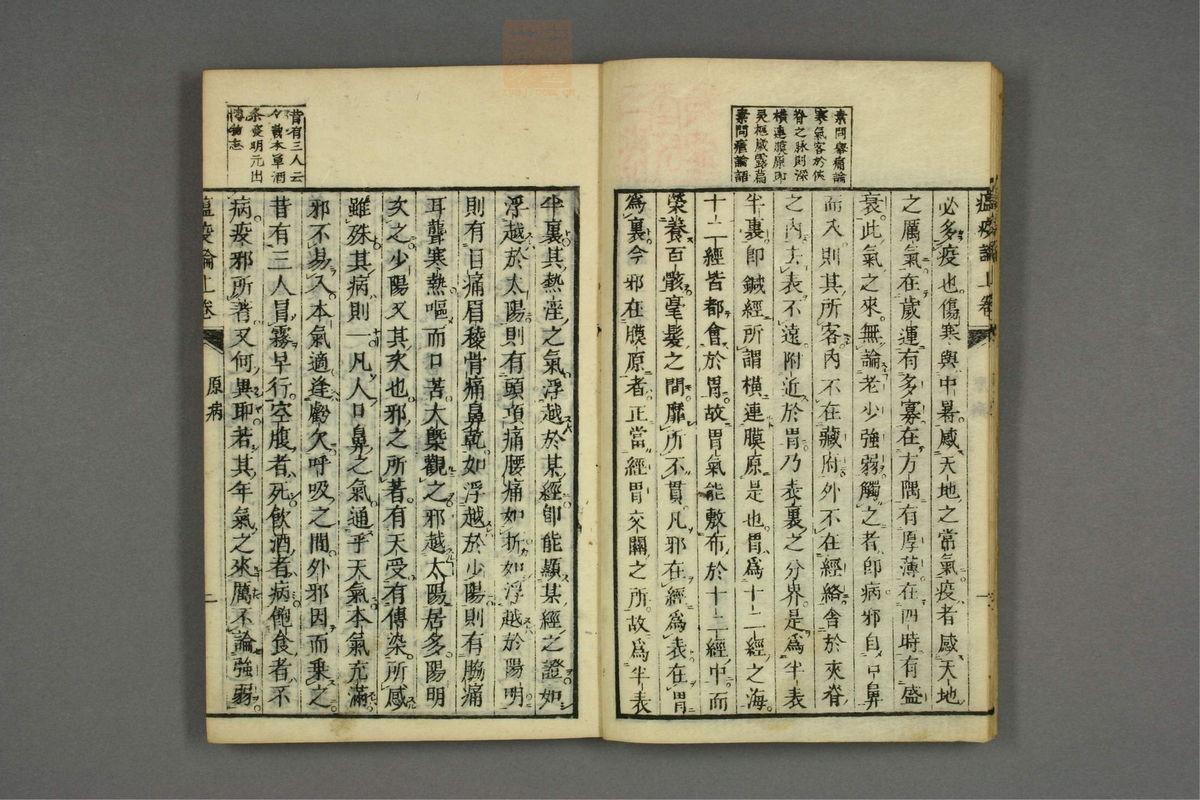 素問舉痛論
寒氣客於俠
脊之脉則深
橫連膜原即
靈樞歲露篇
素問瘧論語
瘟疫論上卷
必多疫也傷寒與中暑感天地之常氣疫者感天地
之厲氣在歲運有多寡在方隅有厚薄在四時有盛
衰此氣之來無論老少強弱觸之者即病邪自口鼻
而入則其所客內不在藏府外不在經絡舎於夾脊
之內去表不遠附近於胃乃表裏之分界是爲半表
半裏即鍼經所謂橫連膜原是也胃爲十二經之海
十二經皆都會於胃故胃氣能敷布於十二經中而
榮養百骸毫髮之間靡所不貫凡邪在經爲表在胃
爲裏今邪在膜原者正當經胃交關之所故爲半表
昔有三人云
々載本草酒
条發明元出
博物志
半裏其熱淫之氣浮越於某經即能顯某經之證如
浮越於太陽則有頭項痛腰痛如折如浮越於陽明
則有目痛眉稜骨痛鼻乾如浮越於少陽則有脇痛
耳聾寒熱嘔而口苦大槩觀之邪越太陽居多陽明
次之少陽又其次也邪之所著有天受有傳染所感
雖殊其病則一凡人口鼻之氣通乎天氣本氣充滿
邪不易入本氣適逢虧欠呼吸之間外邪因而乘之
昔有三人冒霧早行空腹者死飮酒者病飽食者不
病疫邪所著又何異耶若其年氣之來厲不論強弱
瘟疫論上卷
原病
二